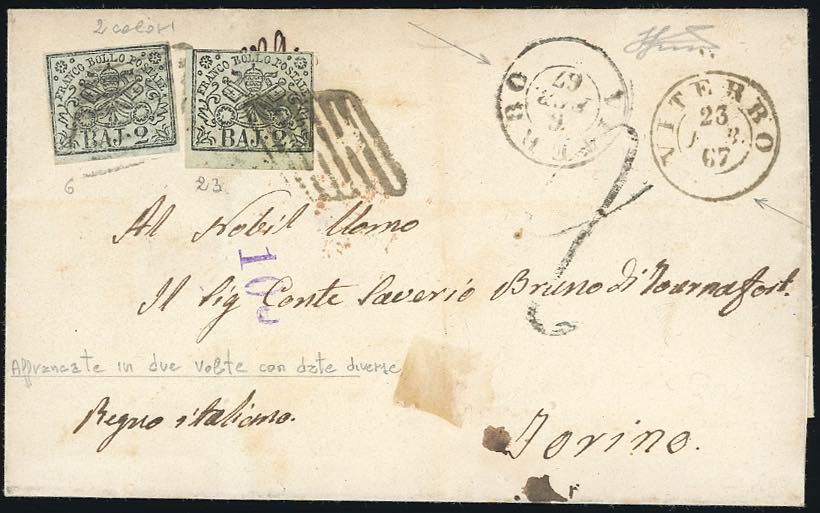 2 colori
FRANCO BOLLO POSTALE
BAJ. 2
FRANCO BOLLO POSTALE
BAJ. 2
6
23
VITERBO
6
FEB
67
VITERBO
23
FEB.
67
Al Nobil Uomo
Il Sig Conte Saverio Bruno di Tournafort.
10
2
Affrancate in due volte con date diverse
Regno italiano.
Torino.